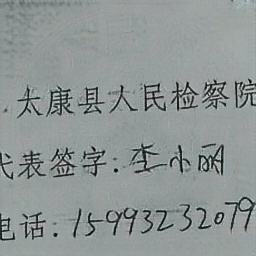 太康县人民检察院
代表签字:李小丽
电话:15993232079